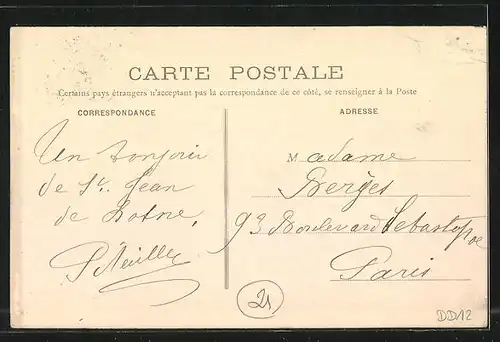 CARTE POSTALE
Certains pays étrangers n'acceptant pas la correspondance de ce côté, se renseigner à la Poste
CORRESPONDANCE
ADRESSE
Un bonjour
de St. Jean
de Losne,
Madame
Bergès
93 Boulevard Sebastopol
Paris
21
DD/12